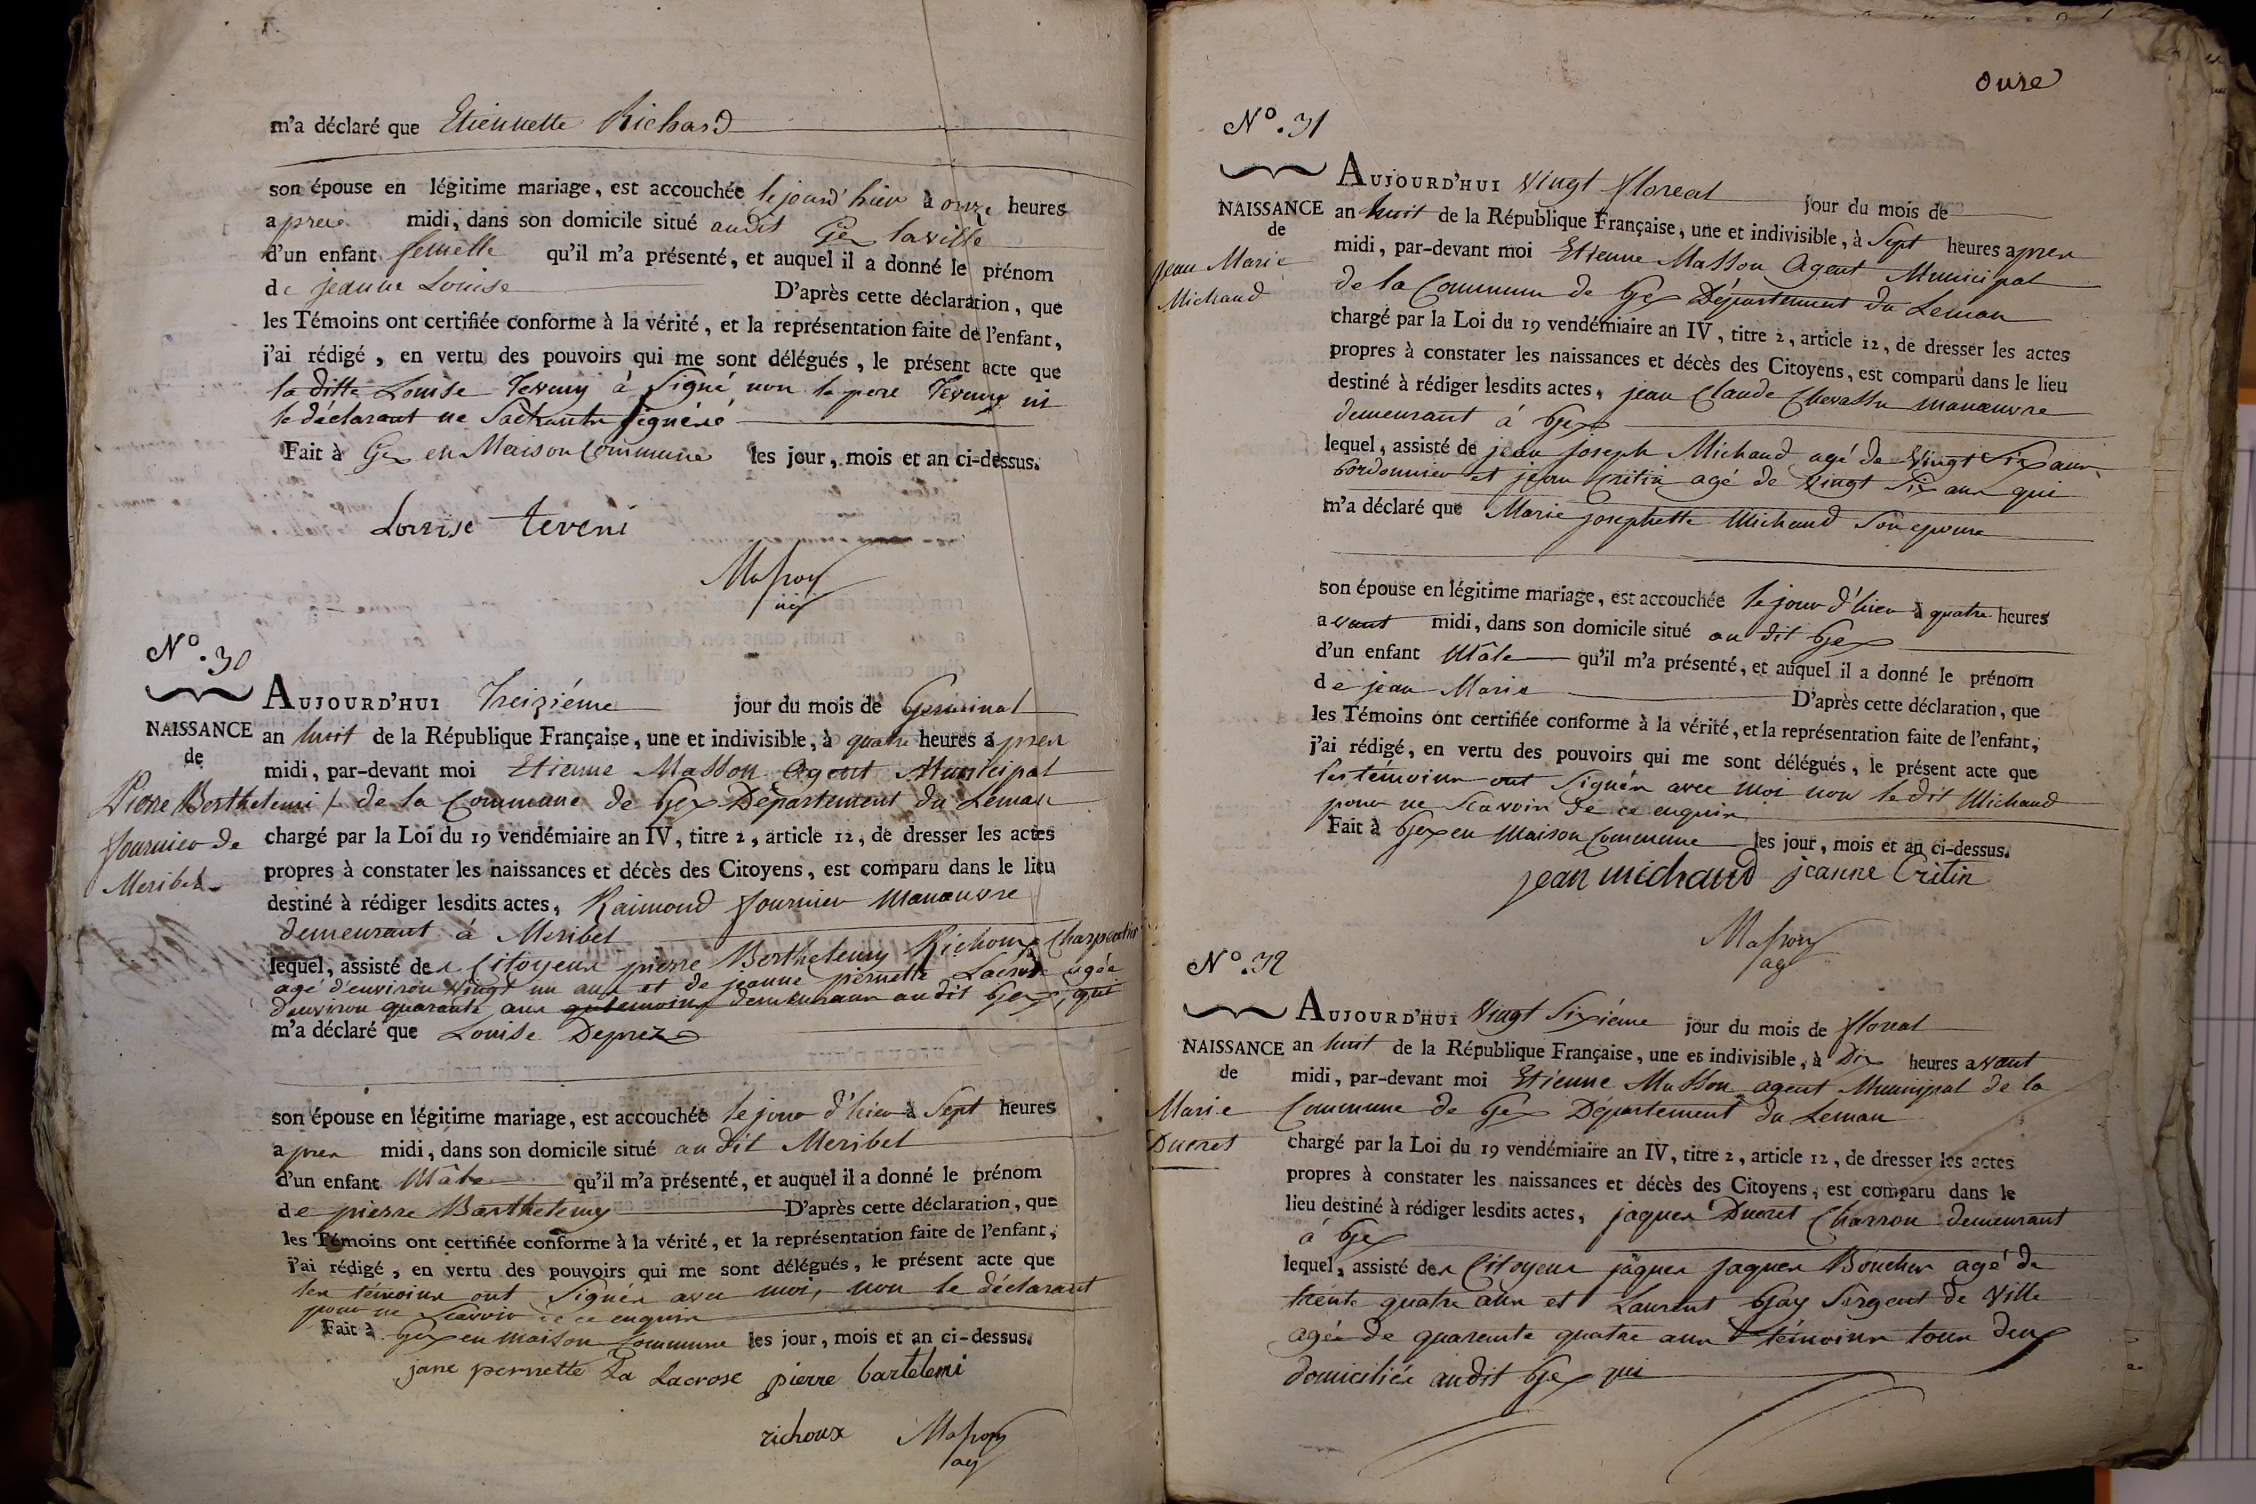 m'a déclaré que Etiennette Richard
son épouse en légitime mariage, est accouchée le jourd'hier à onze heures
apres midi, dans son domicile situé audit Gex la ville
d'un enfant femelle qu'il m'a présenté, et auquel il a donné le prénom
de jeanne Louise D'après cette déclaration, que
les Témoins ont certifiée conforme à la vérité, et la représentation faite de l'enfant,
j'ai rédigé, en vertu des pouvoirs qui me sont délégués, le présent acte que
la ditte Louise à Signé non le pere ni
le déclarant ne
Fait à Gex en Maison Commune les jour, mois et an ci-dessus.
Louise teveni
Masson
N°. 30
AUJOURD'HUI Treiziéme jour du mois de Germinal
NAISSANCE
de
Pierre Berthelemi
fournier de
Meribel
an huit de la République Française, une et indivisible, à quatre heures apres
midi, par-devant moi Etienne Masson Agent Municipal
de la Commune de Gex Département du Leman
chargé par la Loi du 19 vendémiaire an IV, titre 2, article 12, de dresser les actes
propres à constater les naissances et décès des Citoyens, est comparu dans le lieu
destiné à rédiger lesdits actes, Raimond fournier Manœuvre
demeurant à Meribel
lequel, assisté des Citoyens pierre Berthelemy Richoux Charpentier
agé d'environ vingt un ans et de jeanne pernette Lacrose agée
d'environ quarante ans demeurans audit Gex, qui
m'a déclaré que Louise Deprez
son épouse en légitime mariage, est accouchée le jour d'hier à Sept heures
apres midi, dans son domicile situé au dit Meribel
d'un enfant Mâle qu'il m'a présenté, et auquel il a donné le prénom
de pierre Barthelemy D'après cette déclaration, que
les Témoins ont certifiée conforme à la vérité, et la représentation faite de l'enfant,
j'ai rédigé, en vertu des pouvoirs qui me sont délégués, le présent acte que
les témoins ont Signés avec moi, non le déclarant
pour ne Scavoir de ce enquis
Fait à Gex en maison Commune les jour, mois et an ci-dessus.
jane pernette La Lacrose pierre bartelemi
richoux Masson
ag
onze
N°. 31
AUJOURD'HUI Vingt floreal jour du mois de
NAISSANCE
de
Jean Marie
Michaud
an huit de la République Française, une et indivisible, à Sept heures apres
midi, par-devant moi Etienne Masson Agent Municipal
de la Commune de Gex Département du Leman
chargé par la Loi du 19 vendémiaire an IV, titre 2, article 12, de dresser les actes
propres à constater les naissances et décès des Citoyens, est comparu dans le lieu
destiné à rédiger lesdits actes, jean Claude Chevassu manœuvre
demeurant à Gex
lequel, assisté de jean joseph Michaud agé de Vingt Six ans
Cordonnier et jean Critin agé de Vingt Six ans qui
m'a déclaré que Marie josephette Michaud Son epouse
son épouse en légitime mariage, est accouchée le jour d'hier à quatre heures
avant midi, dans son domicile situé au dit Gex
d'un enfant Mâle qu'il m'a présenté, et auquel il a donné le prénom
de jean Marie D'après cette déclaration, que
les Témoins ont certifiée conforme à la vérité, et la représentation faite de l'enfant,
j'ai rédigé, en vertu des pouvoirs qui me sont délégués, le présent acte que
les témoins ont Signés avec moi non le dit Michaud
pour ne Scavoir de ce enquis
Fait à Gex en Maison Commune les jour, mois et an ci-dessus.
jean michaud jeanne Critin
Masson
ag
N°. 32
AUJOURD'HUI Vingt Sixiéme jour du mois de floreal
NAISSANCE
de
Marie
Ducret
an huit de la République Française, une et indivisible, à Dix heures avant
midi, par-devant moi Etienne Masson agent Municipal de la
Commune de Gex Département du Leman
chargé par la Loi du 19 vendémiaire an IV, titre 2, article 12, de dresser les actes
propres à constater les naissances et décès des Citoyens, est comparu dans le
lieu destiné à rédiger lesdits actes, jaques Ducret Charron demeurant
à Gex
lequel, assisté des Citoyens jaques jaques Boucher agé de
trente quatre ans et Laurent Gay Sergent de Ville
agée de quarente quatre ans témoins tous deux
domiciliés audit Gex qui